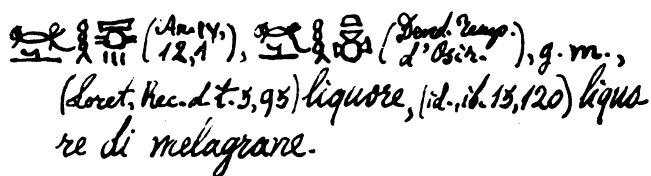 (An. IV, 12,1), (Dend. Temp. d'Osir.), g. m.,
(Loret, Rec. d. t. 5, 95) liquore, (id., ib. 15, 120) liquo
re di melagrane.